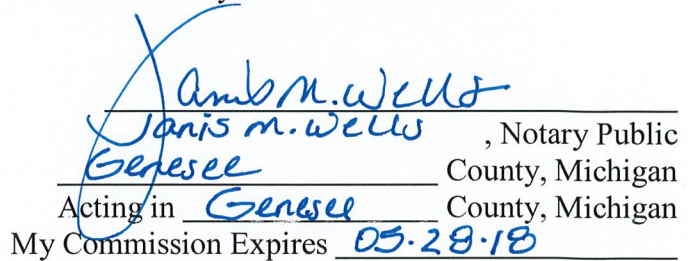 Janis M. Wells
Janis M. Wells , Notary Public
Genesee County, Michigan
Acting in Genesee County, Michigan
My Commission Expires 05.28.18